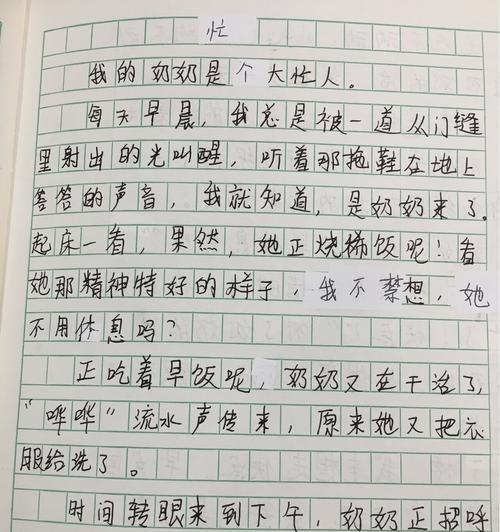 忙
我的奶奶是个大忙人。
每天早晨，我总是被一道从门缝
里射出的光叫醒，听着那拖鞋在地上
答答的声音，我就知道，是奶奶来了。
起床一看，果然，她正烧稀饭呢！看
她那精神特好的样子，我不禁想，她
不用休息吗？
正吃着早饭呢，奶奶又在干活了，
“哗哗”流水声传来，原来她又把衣
服给洗了。
时间转眼来到下午，奶奶正招呼